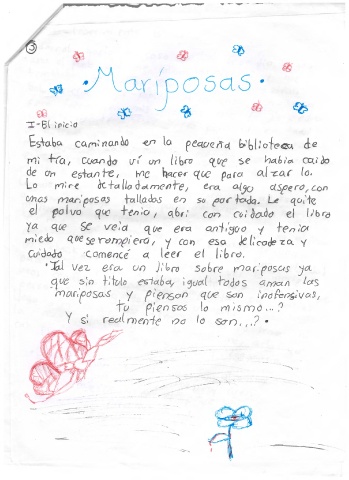 ③
• Mariposas •
I-El inicio
Estaba caminando en la pequeña biblioteca de
mi tía, cuando ví un libro que se habia caido
de un estante, me hacer que para alzar lo.
Lo mire detalladamente, era algo aspero, con
unas mariposas talladas en su portada. Le quite
el polvo que tenia, abri con cuidado el libro
ya que se veia que era antiguo y tenia
miedo que se rompiera, y con esa delicadeza y
cuidado comencé a leer el libro.
•Tal vez era un libro sobre mariposas ya
que sin titulo estaba, igual todos aman las
mariposas y piensan que son inofensivas,
tu piensas lo mismo...?
Y si realmente no lo son...? •